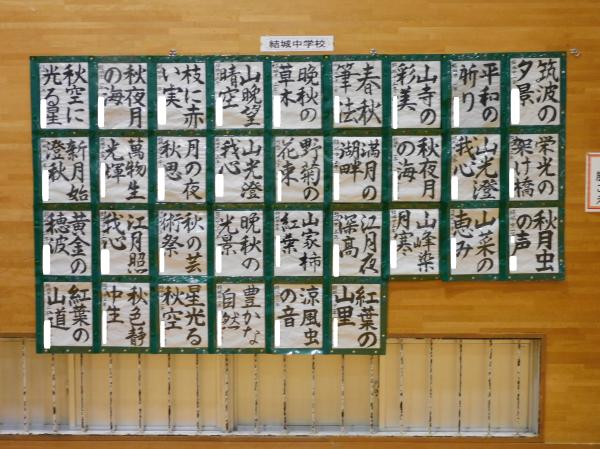 結城中学校
筑波の
夕景
平和の
祈り
山寺の
彩美
春秋
筆法
晩秋の
草木
山晩望
晴空
枝に赤
い実
秋夜月
の海
秋空に
光る星
栄光の
架け橋
山光澄
我心
秋夜月
の海
満月の
湖畔
野菊の
花束
山光澄
我心
月の夜
秋思
萬物生
光輝
新月始
澄秋
秋月虫
の声
山菜の
恵み
山峰染
月寒
江月夜
深高
山家柿
紅葉
晩秋の
光景
秋の芸
術祭
江月照
我心
黄金の
穂波
紅葉の
山里
涼風虫
の音
豊かな
自然
星光る
秋空
秋色静
中生
紅葉の
山道